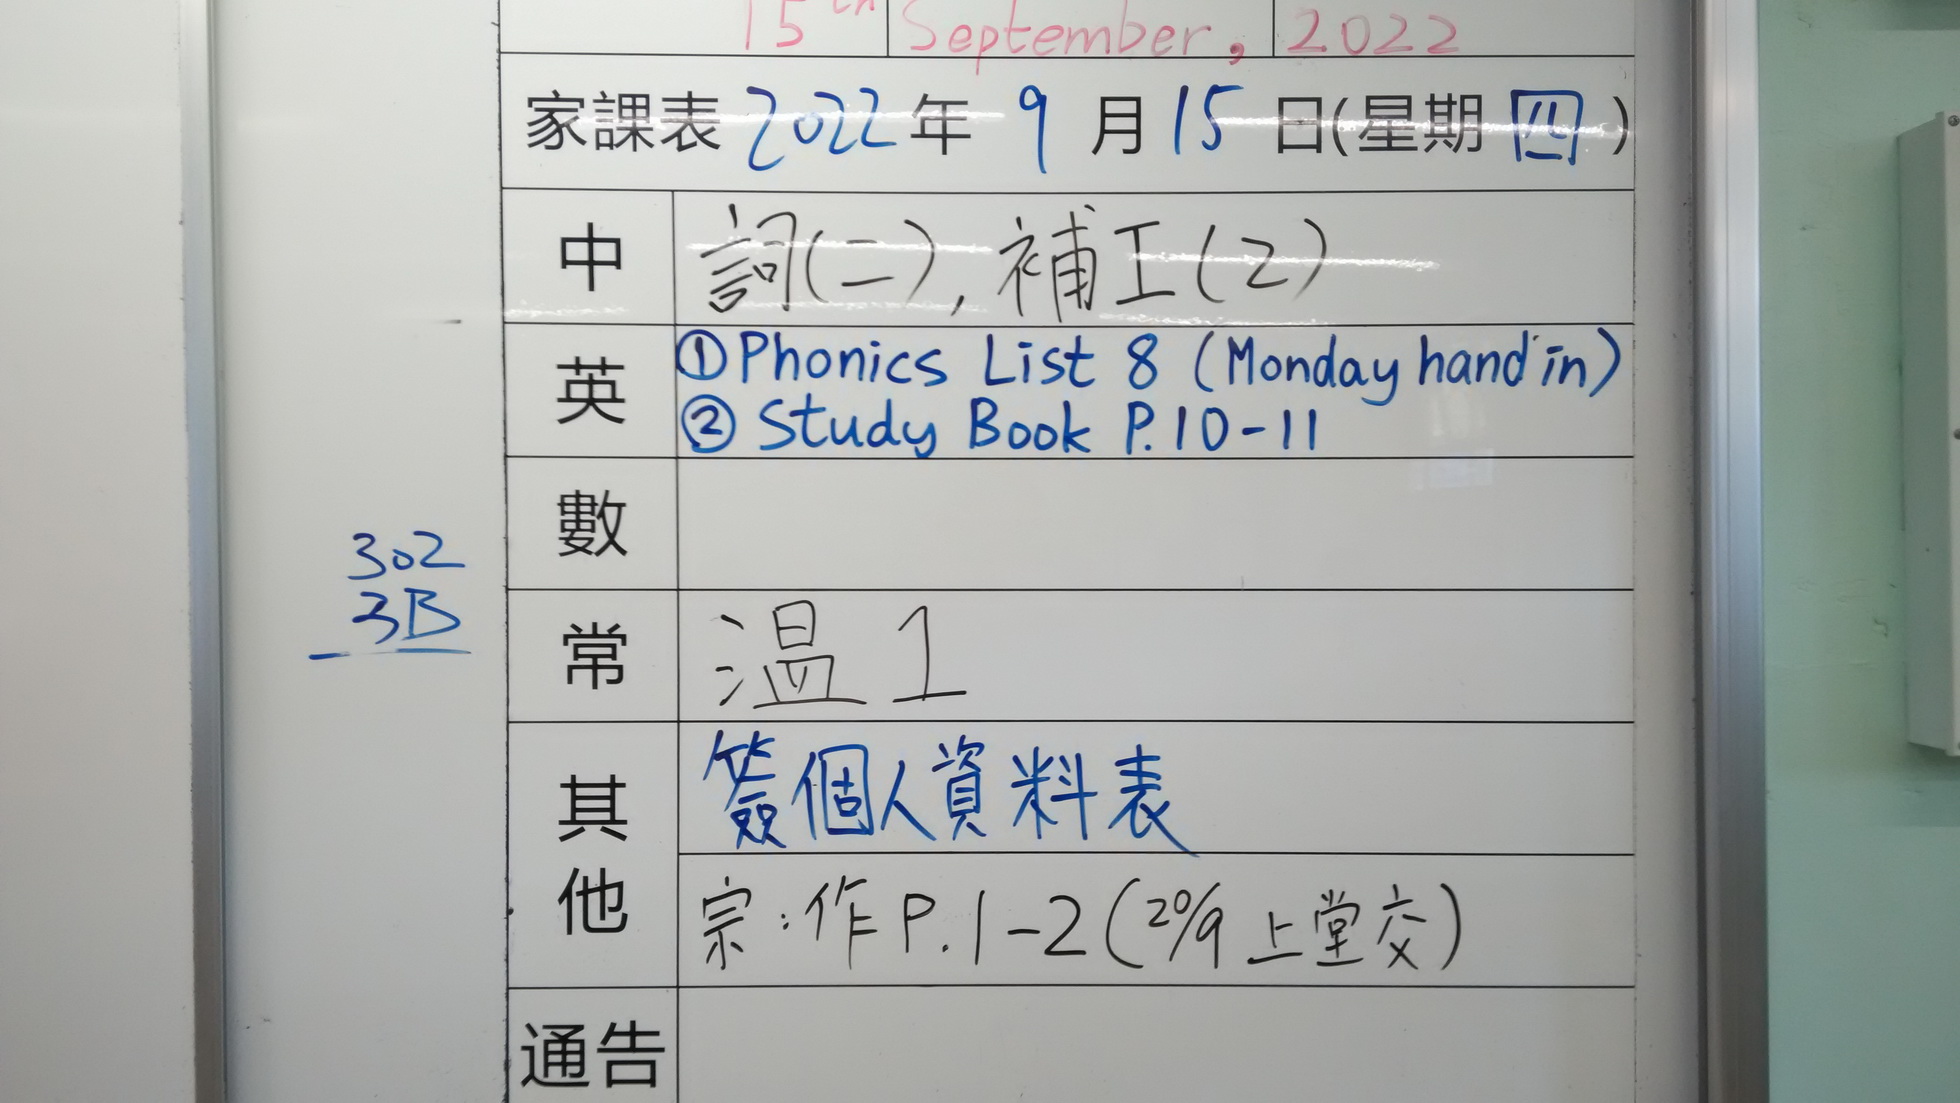 15th September, 2022
家課表 2022年 9月15日(星期四)
中 詞(二), 補工(2)
英 ①Phonics List 8 (Monday hand in)
② Study Book P.10-11
數
302
3B
常 温1
其他 簽個人資料表
宗:作P.1-2(20/9上堂交)
通告